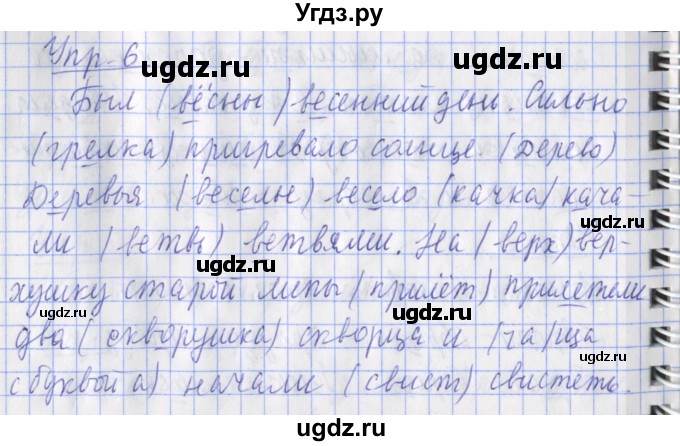 Угдз.ру
Упр. 6
gdz.ru
gdz.ru
Был (вёсны) весенний день. Сильно
(грелка) пригревало солнце. (Дерево)
Деревья (веселье) весело (качка) кача-
gdz.ru
gdz.ru
ли (ветвь) ветвями. На (верх) вер-
gdz.ru
хушку старой липы (прилёт) прилетели
gdz.ru
два (скворушка) скворца и (ча/ща
с буквой а) начали (свист) свистеть.
gdz.ru
gdz.ru
Угдз.ру